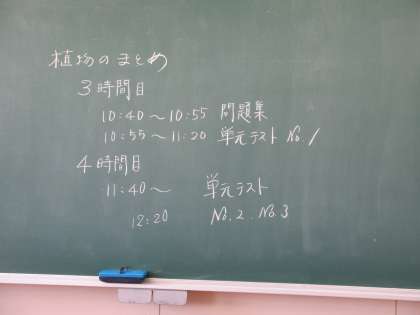 植物のまとめ
3時間目
10:40~10:55 問題集
10:55~11:20 単元テスト No.1
4時間目
11:40~ 単元テスト
12:20 No.2. No.3